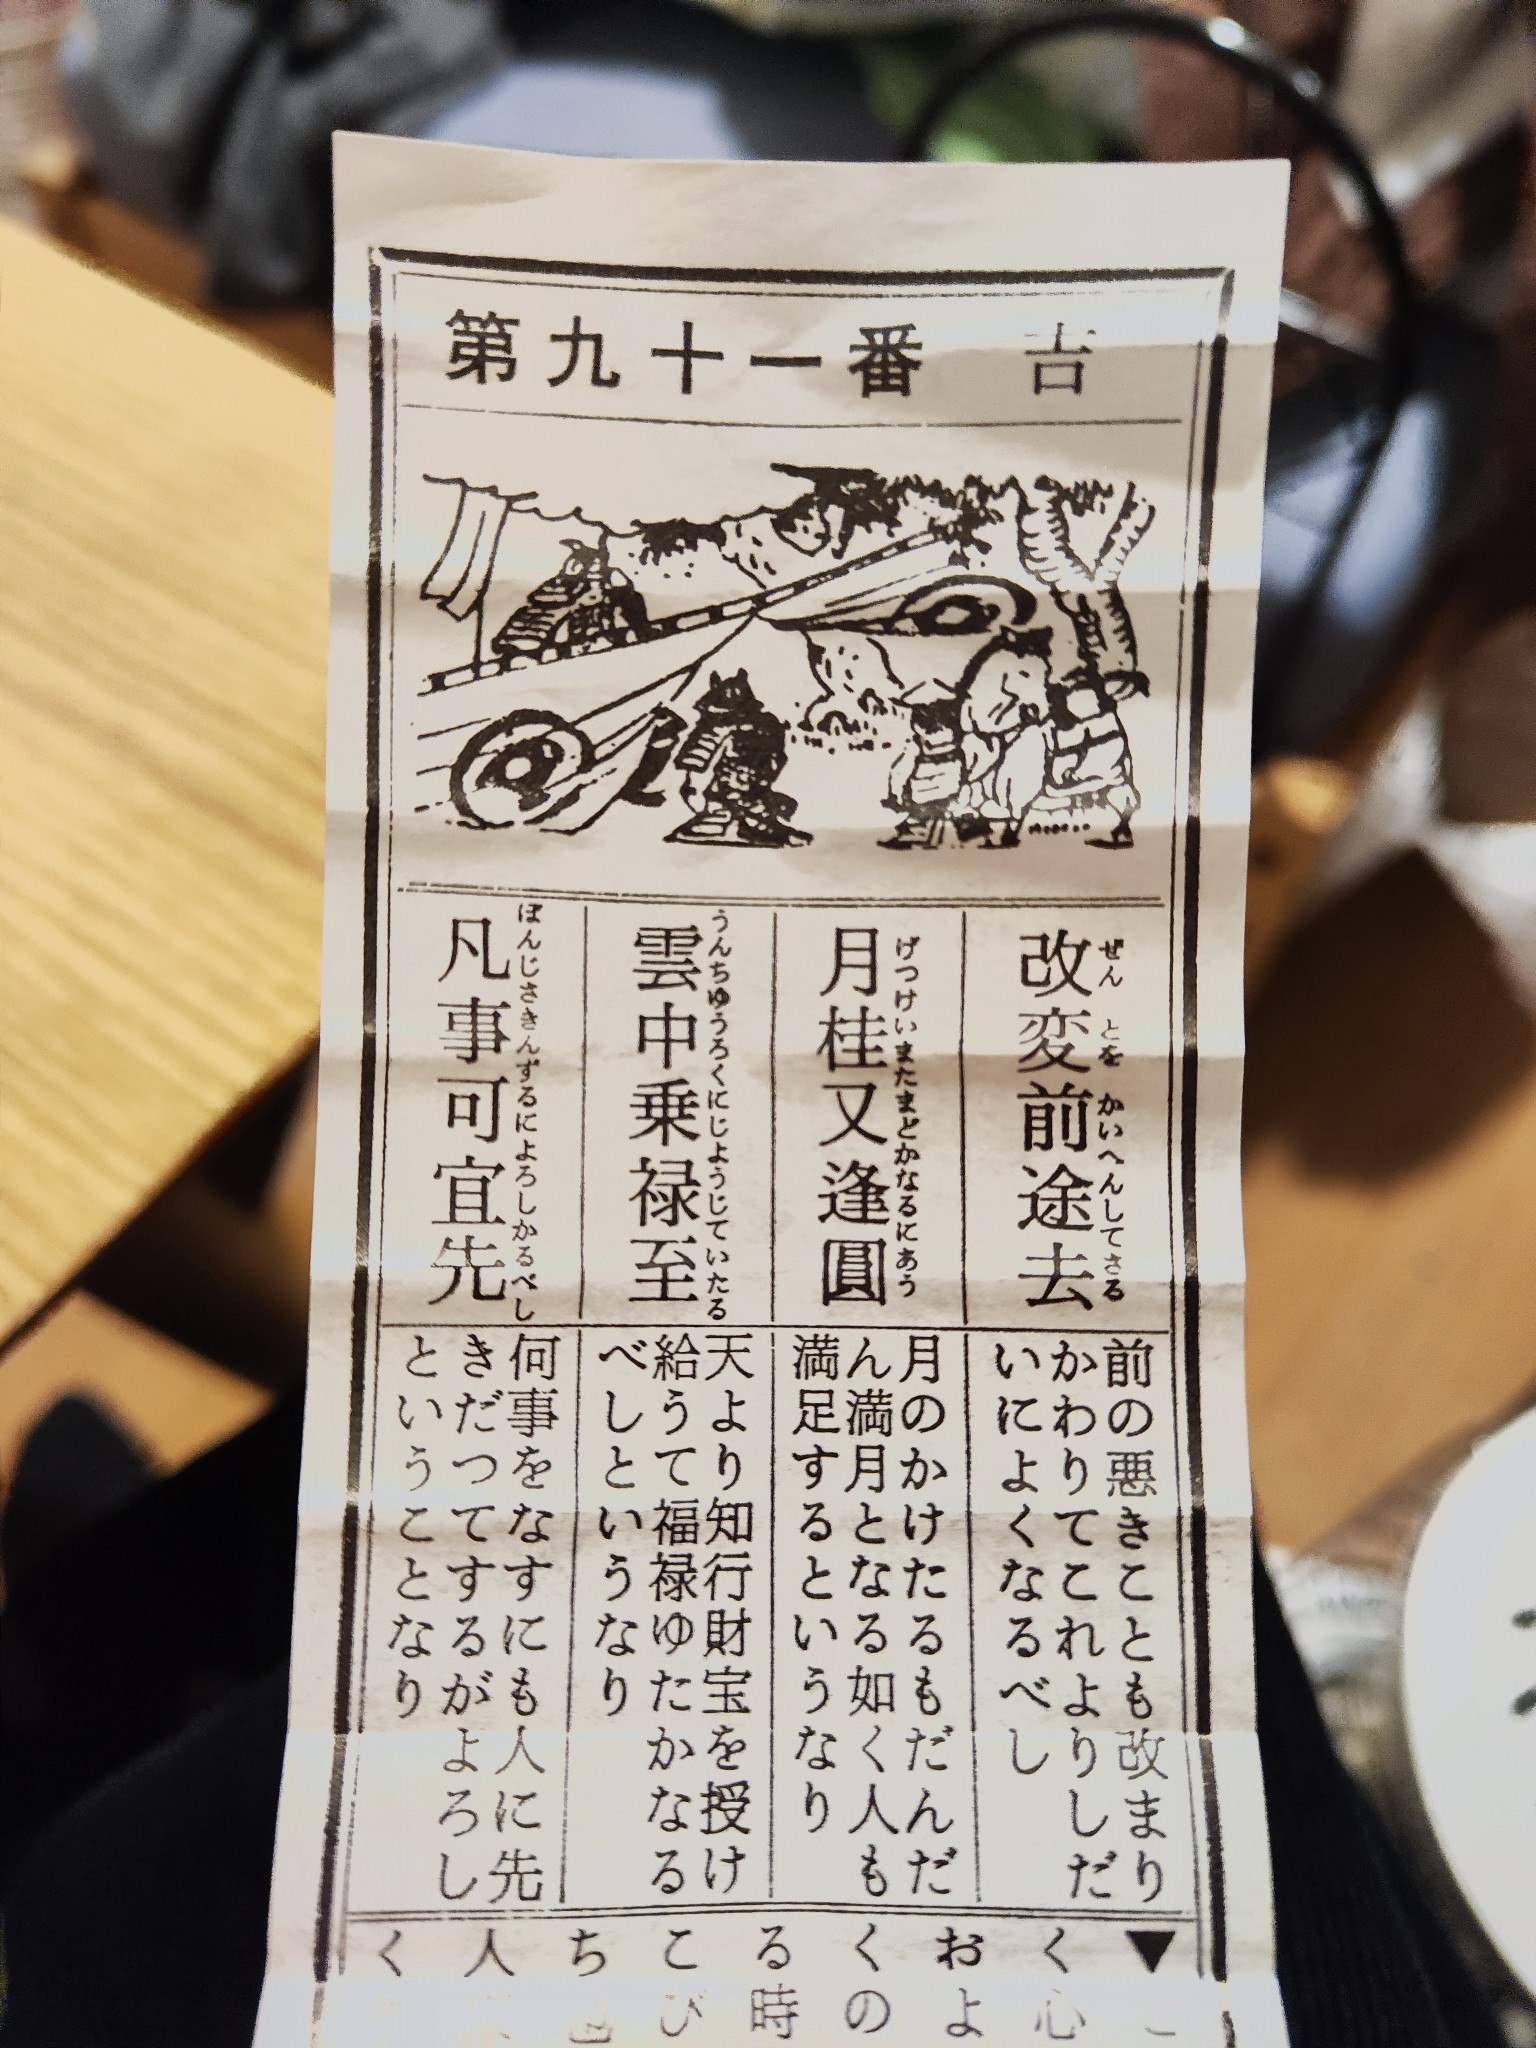 第九十一番　吉
改変前途去
ぜんとをかいへんしてさる
前の悪きことも改まり
かわりてこれよりしだ
いによくなるべし
月桂又逢圓
げつけいまたまどかなるにあう
月のかけたるもだんだ
ん満月となる如く人も
満足するというなり
雲中乗禄至
うんちゆうろくにじようじていたる
天より知行財宝を授け
給うて福禄ゆたかなる
べしというなり
凡事可宜先
ぼんじさきんずるによろしかるべし
何事をなすにも人に先
きだつてするがよろし
ということなり
▼こ
く心
およ
くの
る時
こび
ち
人
く